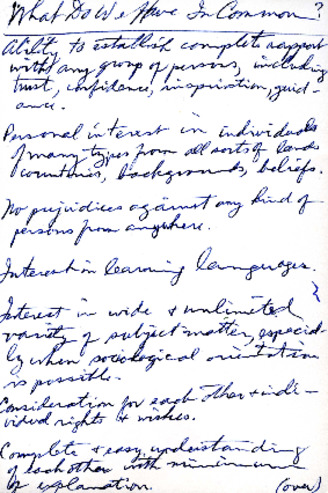 What Do We Have In Common?
Ability to establish complete rapport
with any group of persons, including
trust, confidence, inspiration, guid-
ance.
Personal interest in individuals
of many types from all sorts of lands
countries, backgrounds, beliefs.
No prejudices against any kind of
persons from anywhere.
Interest in learning languages.
Interest in wide & unlimited
variety of subject matter, especial-
ly when sociological orientation
is possible.
Consideration for each other & indi-
vidual rights & wishes.
Complete & easy understanding
of each other with minimum
of explanation.
(over)